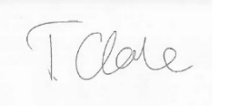 T. Clare